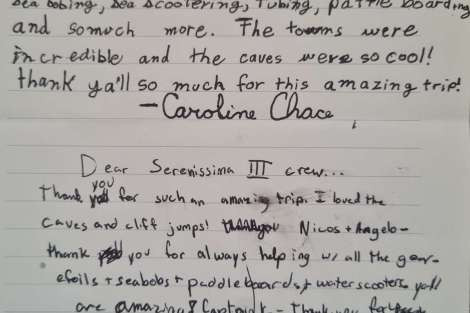 sea bobing, sea scootering, tubing, paddle boarding
and somuch more. The towns were
incredible and the caves were so cool!
thank ya'll so much for this amazing trip!
-Caroline Chace
Dear Serenissima III crew...
Thank you for such an amazing trip. I loved the
caves and cliff jumps! Nicos + Angelo-
thank you for always helping w/ all the gear-
efoils + seabobs + paddleboards + waterscooters yall
are amazing! Captain - Thank you for